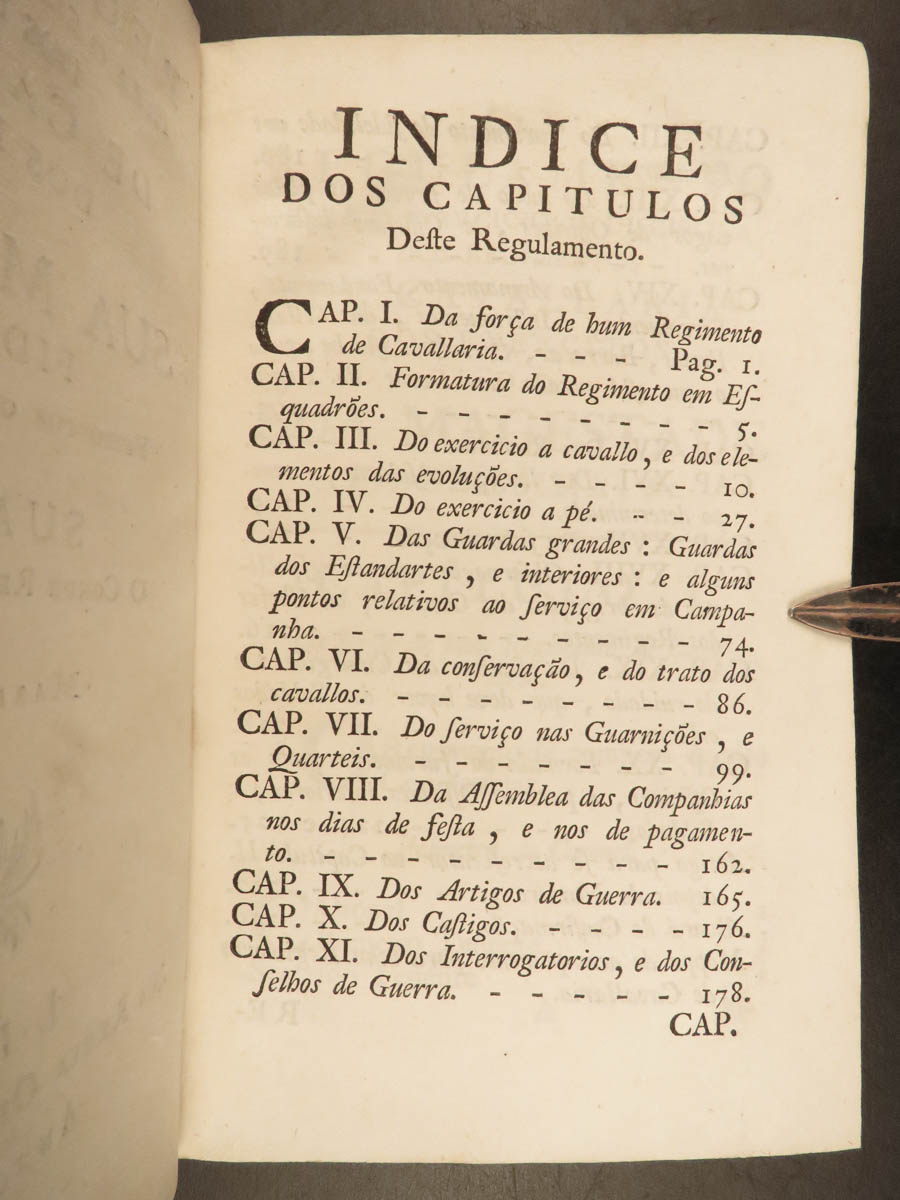 INDICE
DOS CAPITULOS
Deſte Regulamento.
CAP. I. Da força de hum Regimento
de Cavallaria. - - - Pag. 1.
CAP. II. Formatura do Regimento em Eſ-
quadrões. - - - - - - - - 5.
CAP. III. Do exercicio a cavallo, e dos ele-
mentos das evoluções. - - - - 10.
CAP. IV. Do exercicio a pé. - - 27.
CAP. V. Das Guardas grandes : Guardas
dos Eſtandartes , e interiores : e alguns
pontos relativos ao ſerviço em Campa-
nha. - - - - - - - - - 74.
CAP. VI. Da conſervação, e do trato dos
cavallos. - - - - - - - - 86.
CAP. VII. Do ſerviço nas Guarnições , e
Quarteis. - - - - - - - 99.
CAP. VIII. Da Aſſemblea das Companhias
nos dias de feſta , e nos de pagamen-
to. - - - - - - - - - 162.
CAP. IX. Dos Artigos de Guerra. 165.
CAP. X. Dos Caſtigos. - - - - 176.
CAP. XI. Dos Interrogatorios, e dos Con-
ſelhos de Guerra. - - - - - 178.
CAP.